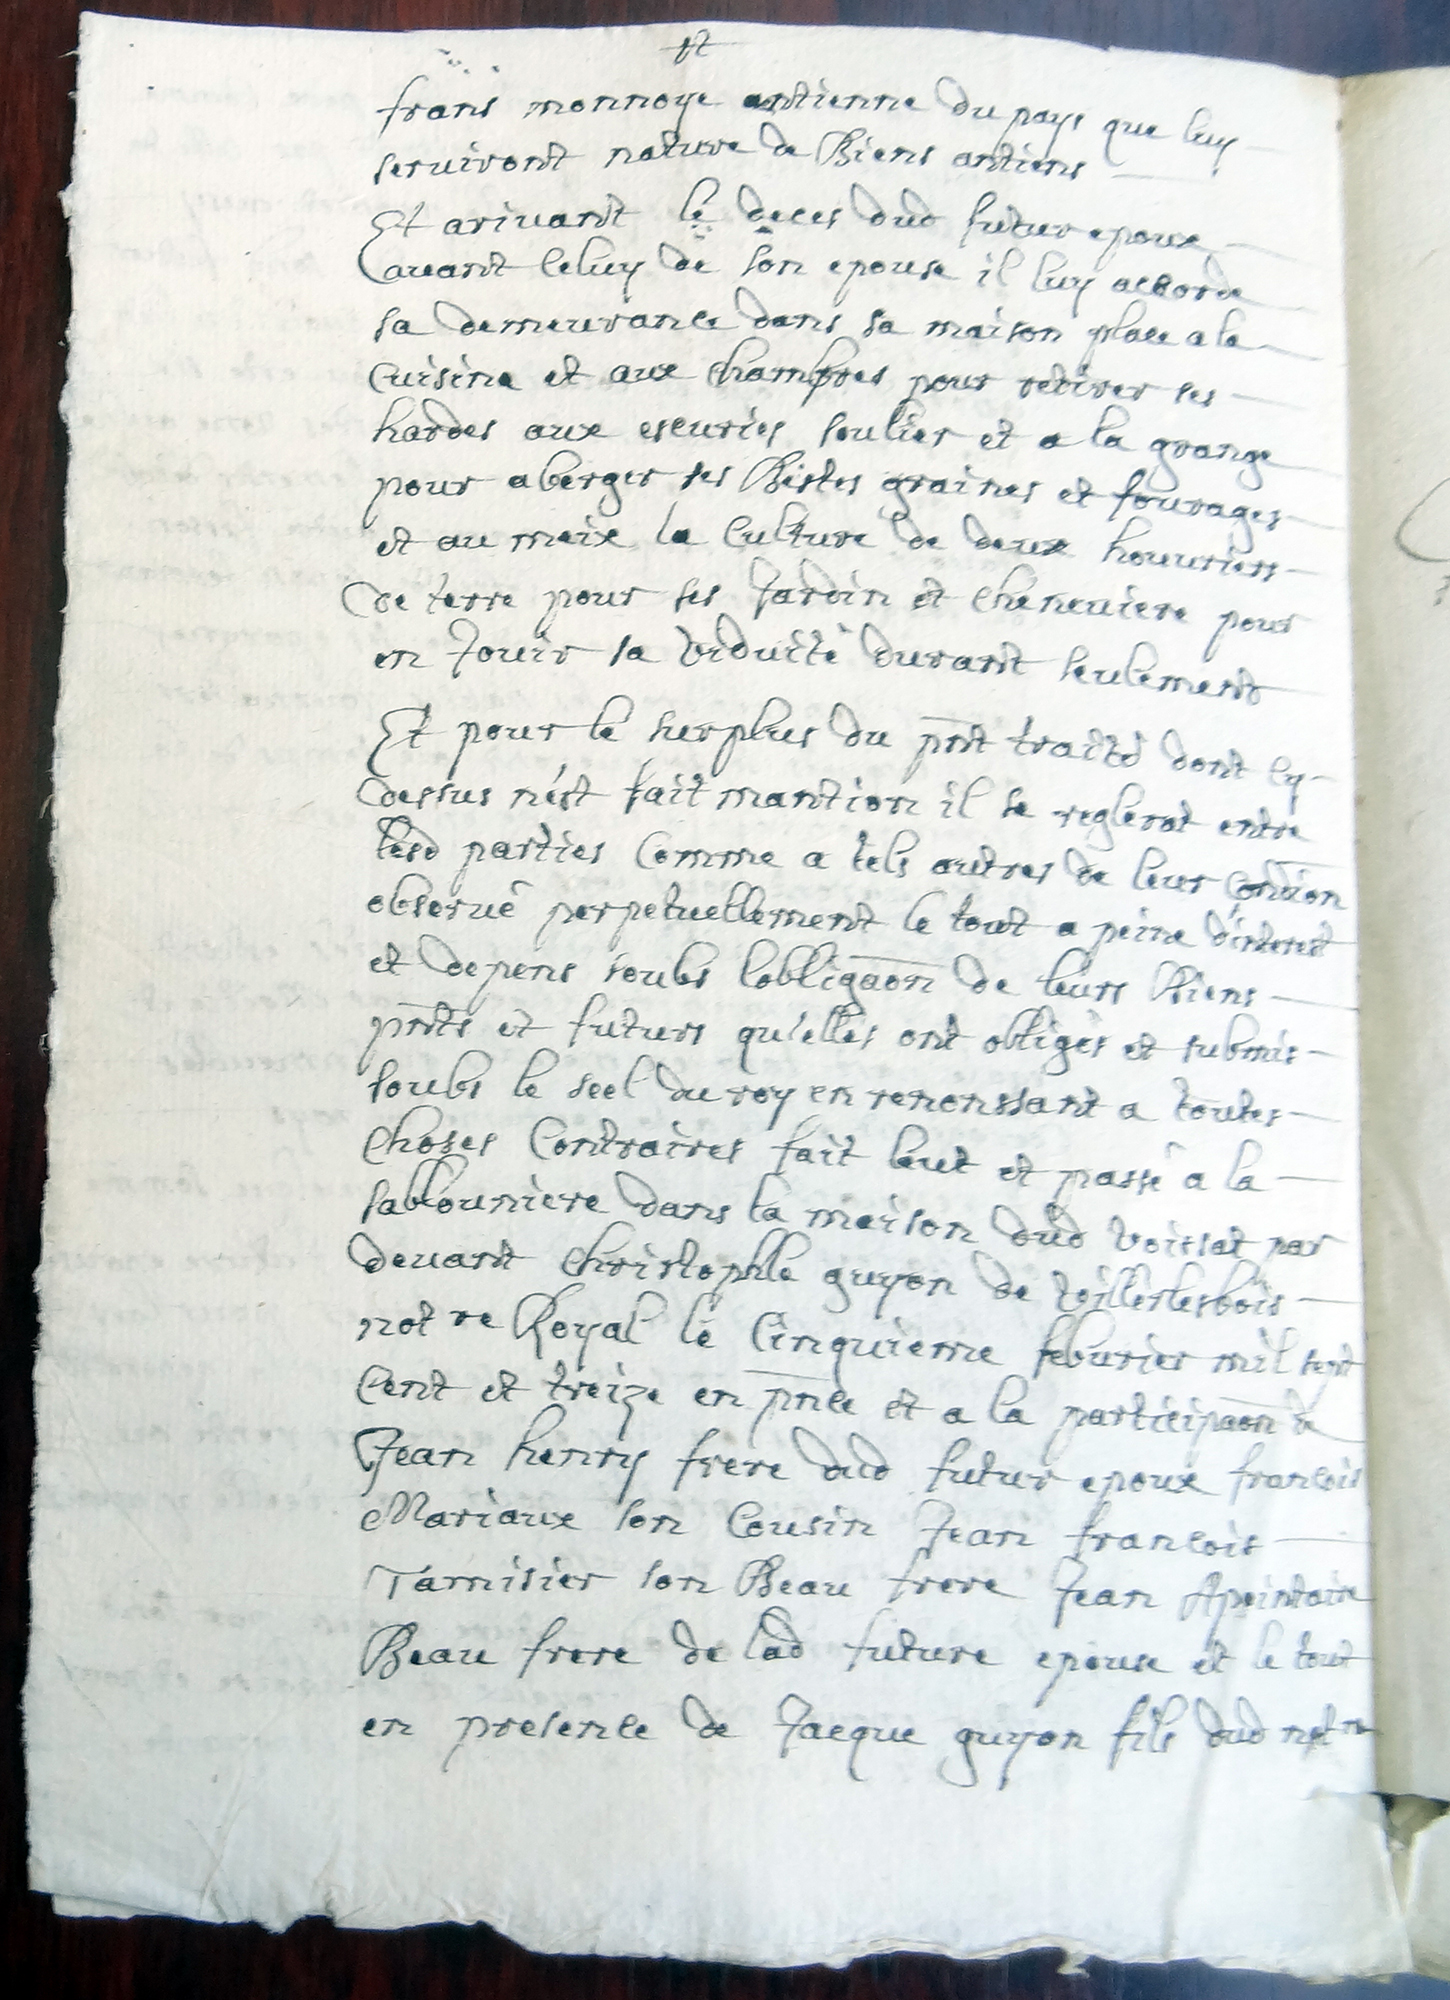 frans monnoye antienne du pays que luy
serviront nature de Biens antiens
Et arivant le deces dud futur epoux
avant celuy de son epouse il luy accorde
sa demeurance dans sa maison place a la
cuisine et aux chambres pour retirer ses
hardes aux escuries soulier et a la grange
pour aberger ses Bestes graines et fourages
et au meix la culture de deux houvriers
de terre pour ses Jardin et cheneviere pour
en Jouir sa viduité durant seulement
Et pour le surplus du pnt traité dont cy
dessus n'est fait mantion il se reglerat entre
lesd parties comme a tels autres de leur condion
observé perpetuellement le tout a peine d'interest
et depens soubs lobligaon de leurs Biens
pnts et futurs qu'elles ont obligés et submis
soubs le seel du roy en renonssant a toutes
choses contraires fait leut et passé a la
sablouniere dans la maison dud voissat par
devant christophle guyon de villerlesbois
notre Royal le cinquieme febvrier mil sept
cent et treize en pnce et a la participaon de
Jean henry frere dud futur epoux francois
Mariaux son cousin Jean francois
Tamisier son Beau frere Jean Apointaire
Beau frere de lad future epouse et le tout
en presence de Jacque guyon fils dud notre